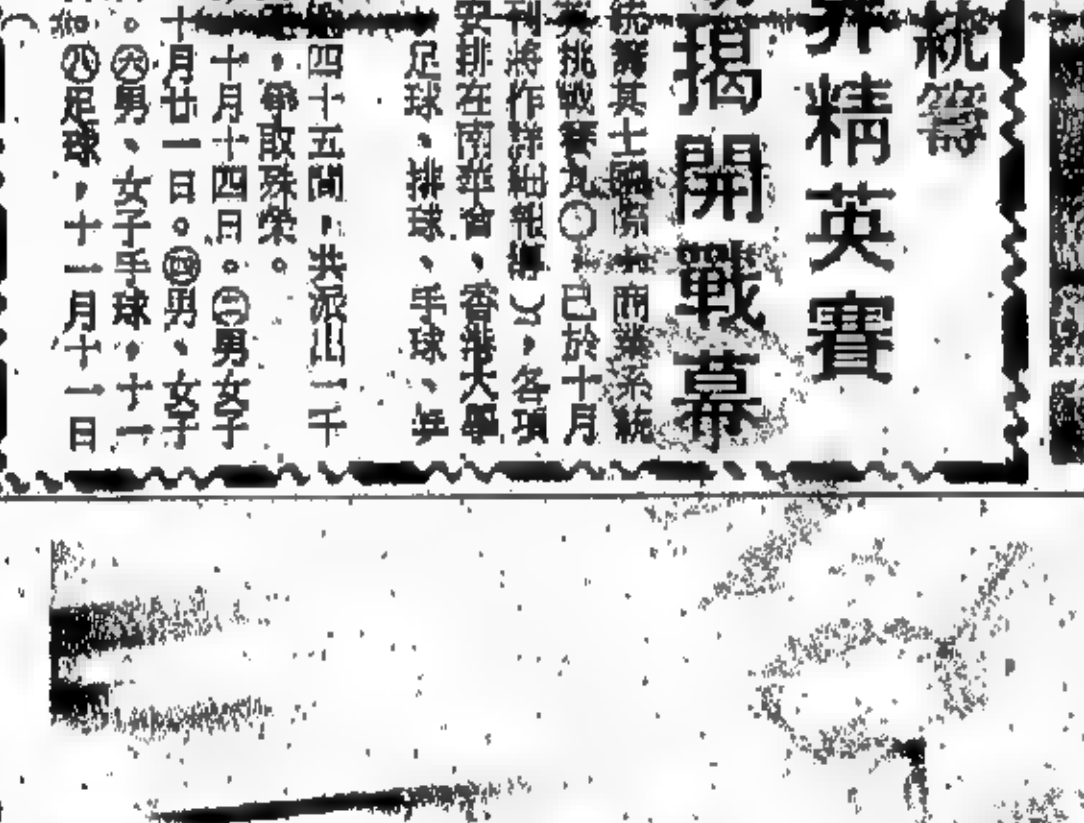 統籌
界精英賽
揭開戰幕
統籌其士國際 商業系統
挑戰賽 已於十月
刊將作詳細報 ，各項
安排在南華會、香港大學
足球、排球、手球、乒
四十五間，共派出二千
，爭取殊榮。
十月十四日。㊁男女子
十月廿一日。㊃男、女子
。㊅男、女子手球，十一
㊇足球，十一月十一日